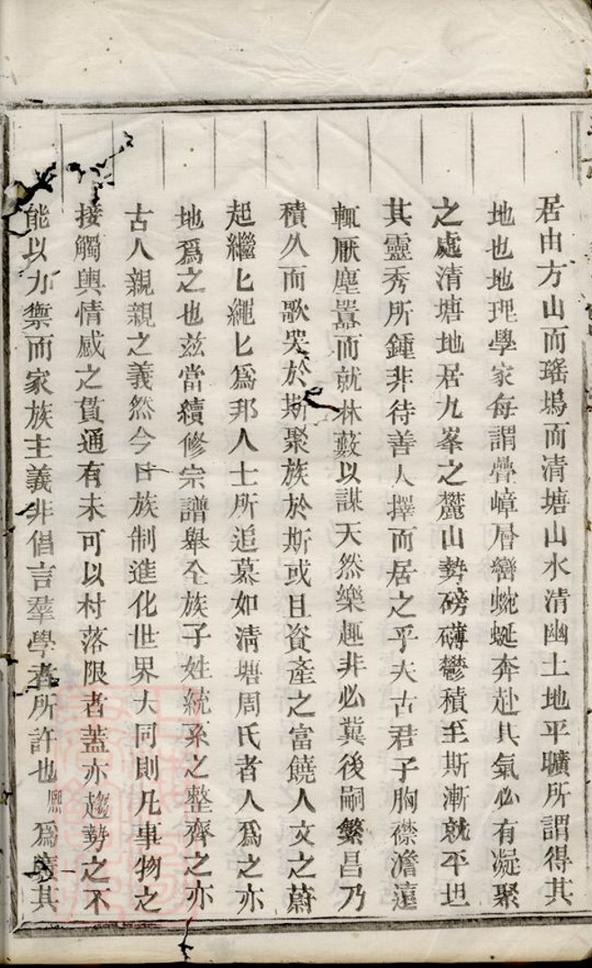 居由方山而瑤塢而清塘山水清幽土地平曠所謂得其
地也地理學家每謂疊嶂層巒蜿蜒奔赴其氣必有凝聚
之處清塘地居九峯之麓山勢磅礴鬱積至斯漸就平坦
其靈秀所鍾非待善人擇而居之乎夫古君子胸襟澹遠
輒厭塵囂而就林藪以謀天然樂趣非必冀後嗣繁昌乃
積久而歌哭於斯聚族於斯或且資產之富饒人文之蔚
起繼匕繩匕爲邦人士所追慕如清塘周氏者人爲之亦
地爲之也茲當續修宗譜舉全族子姓統系之整齊之亦
古人親親之義然今日族制進化世界大同則凡事物之
接觸與情感之貫通有未可以村落限者蓋亦趨勢之不
能以力禦而家族主義非倡言羣學者所許也熙爲 其